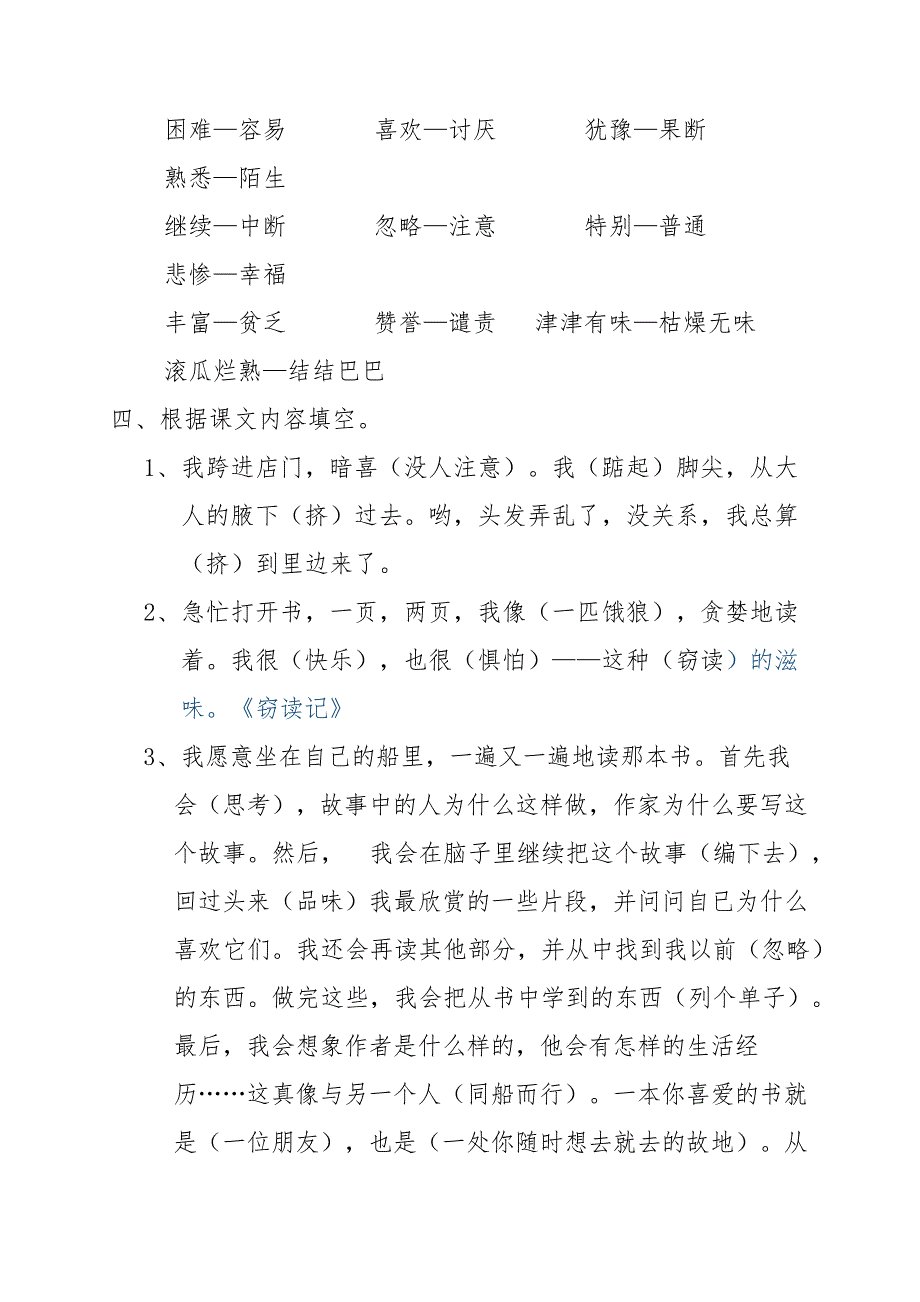 困难—容易 喜欢—讨厌 犹豫—果断
熟悉—陌生
继续—中断 忽略—注意 特别—普通
悲惨—幸福
丰富—贫乏 赞誉—谴责 津津有味—枯燥无味
滚瓜烂熟—结结巴巴
四、根据课文内容填空。
1、我跨进店门，暗喜（没人注意）。我（踮起）脚尖，从大
人的腋下（挤）过去。哟，头发弄乱了，没关系，我总算
（挤）到里边来了。
2、急忙打开书，一页，两页，我像（一匹饿狼），贪婪地读
着。我很（快乐），也很（惧怕）——这种（窃读）的滋
味。《窃读记》
3、我愿意坐在自己的船里，一遍又一遍地读那本书。首先我
会（思考），故事中的人为什么这样做，作家为什么要写这
个故事。然后， 我会在脑子里继续把这个故事（编下去），
回过头来（品味）我最欣赏的一些片段，并问问自已为什么
喜欢它们。我还会再读其他部分，并从中找到我以前（忽略）
的东西。做完这些，我会把从书中学到的东西（列个单子）。
最后，我会想象作者是什么样的，他会有怎样的生活经
历……这真像与另一个人（同船而行）。一本你喜爱的书就
是（一位朋友），也是（一处你随时想去就去的故地）。从